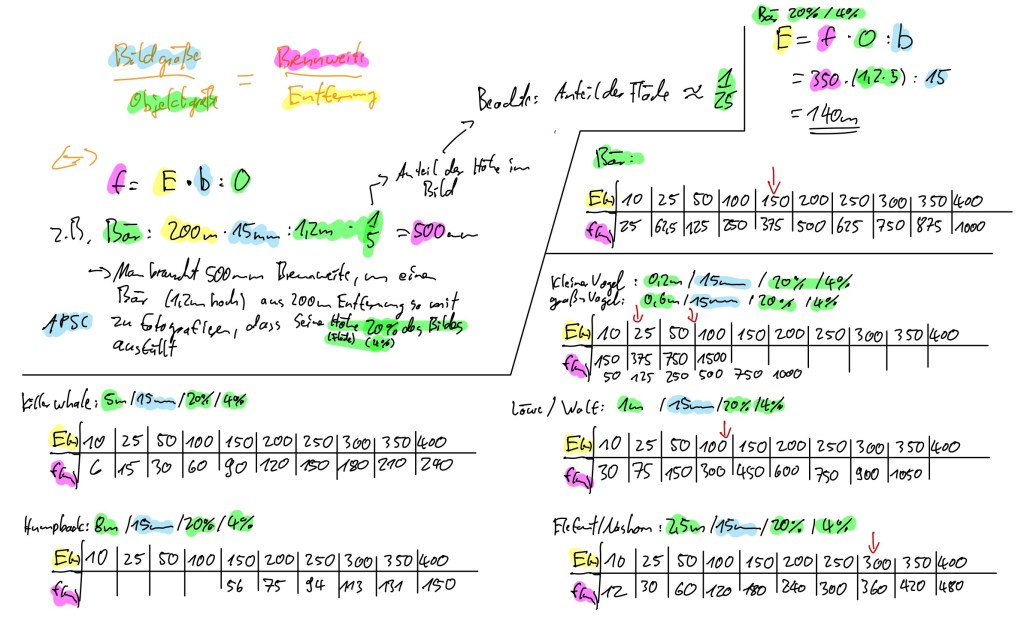 Bildgröße / Objektgröße = Brennweite / Entfernung
Beachte: Anteil der Fläche ≈ 1/25
<=>
f = E · b : O
Anteil der Höhe im
Bild
z.B. Bär: 200m · 15mm : 1,2m · 1/5 = 500mm
→ Man braucht 500mm Brennweite, um einen
Bär (1,2m hoch) aus 200m Entfernung so mit
APSC
zu fotografieren, dass seine Höhe 20% des Bildes
(Fläche) (4%)
ausfüllt
Bär 20% / 4%
E = f · O : b
= 350 · (1,2·5) : 15
= 140m
Bär:
E(m) 10 25 50 100 150 200 250 300 350 400
f(mm) 25 62,5 125 250 375 500 625 750 875 1000
kleiner Vogel: 0,2m / 15mm / 20% / 4%
großer Vogel: 0,6m / 15mm / 20% / 4%
E(m) 10 25 50 100 150 200 250 300 350 400
f(mm) 150 375 750 1500
50 125 250 500 750 1000
Killer whale: 5m / 15mm / 20% / 4%
E(m) 10 25 50 100 150 200 250 300 350 400
f(mm) 6 15 30 60 90 120 150 180 210 240
Löwe / Wolf: 1m / 15mm / 20% / 4%
E(m) 10 25 50 100 150 200 250 300 350 400
f(mm) 30 75 150 300 450 600 750 900 1050
Humpback: 8m / 15mm / 20% / 4%
E(m) 10 25 50 100 150 200 250 300 350 400
f(mm) 56 75 94 113 131 150
Elefant/Nashorn: 2,5m / 15mm / 20% / 4%
E(m) 10 25 50 100 150 200 250 300 350 400
f(mm) 12 30 60 120 180 240 300 360 420 480